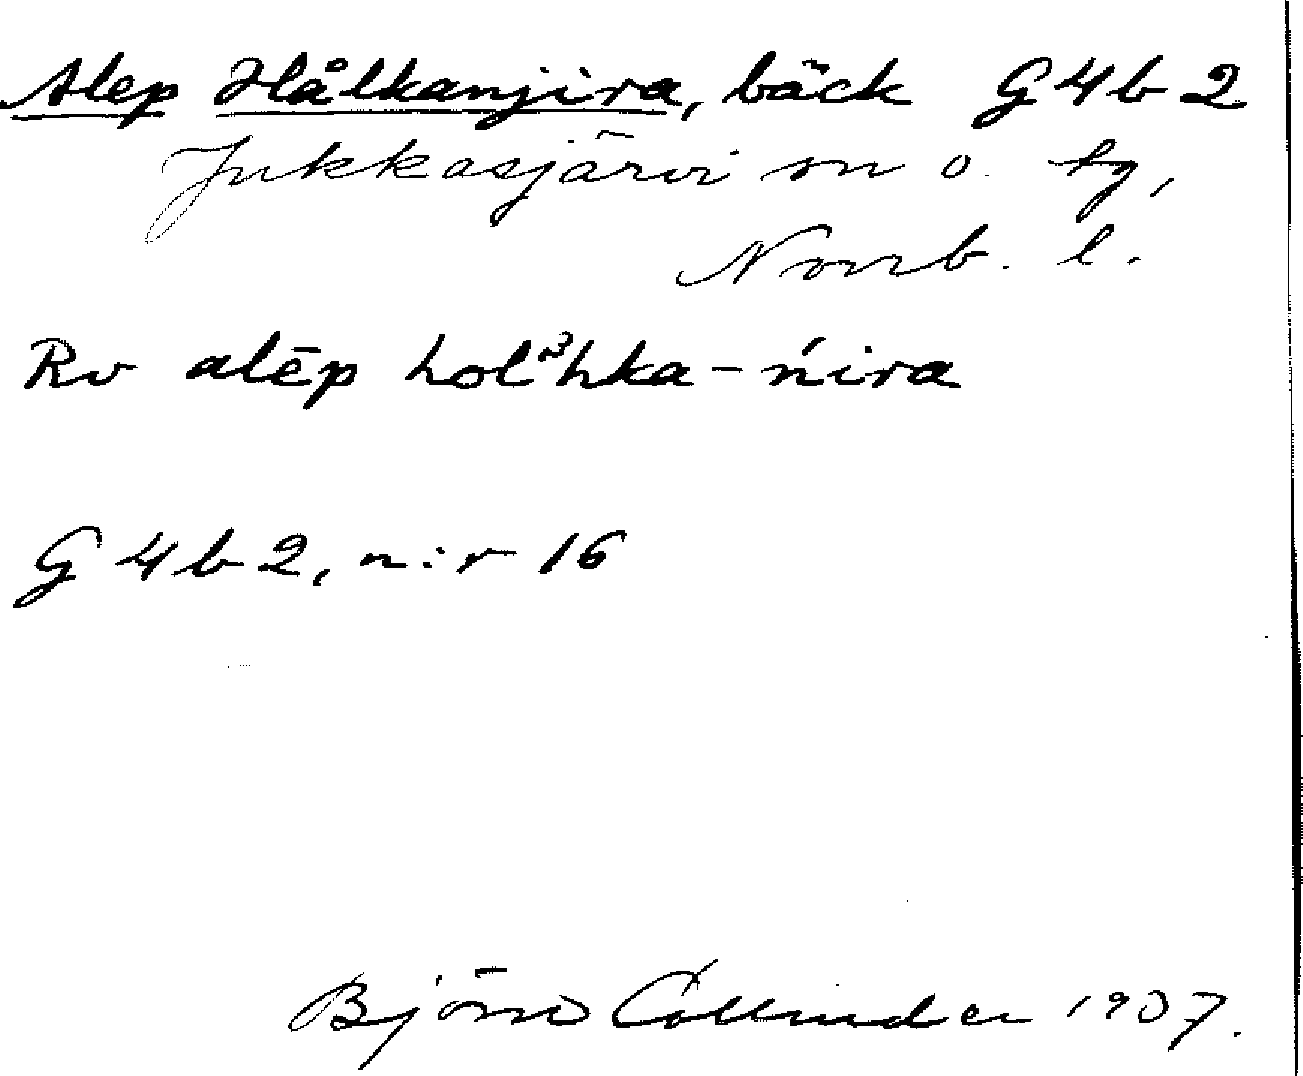 Alep Hålkanjira, bäck G4b2
Jukkasjärvi sn o. tg,
Norrb. l.
Rv alēp hol²hka-ńira
G 4 b 2, n:r 16
Björn Collinder 1937.